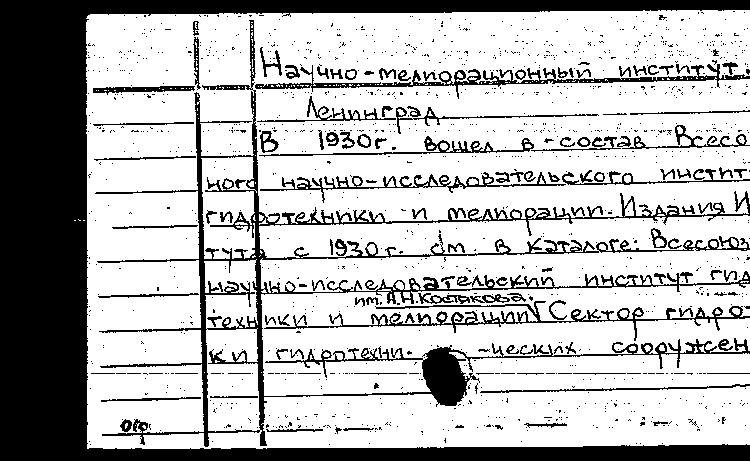 Научно-мелиорационный институт.
Ленинград
В 1930г. вошел в состав Всесо
ного научно-исследовательского инстит
гидротехники и мелиорации. Издания И
тута с 1930г. см. в каталоге: Всесоюз
научно-исследовательский институт гид
им. А.Н.Костякова.
техники и мелиорации Сектор гидро
ки гидротехни- -ческих сооружен